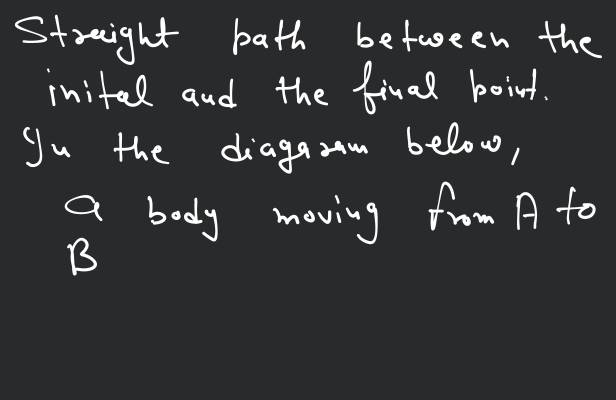 Straight path between the
inital and the final point.
In the diagram below,
a body moving from A to
B